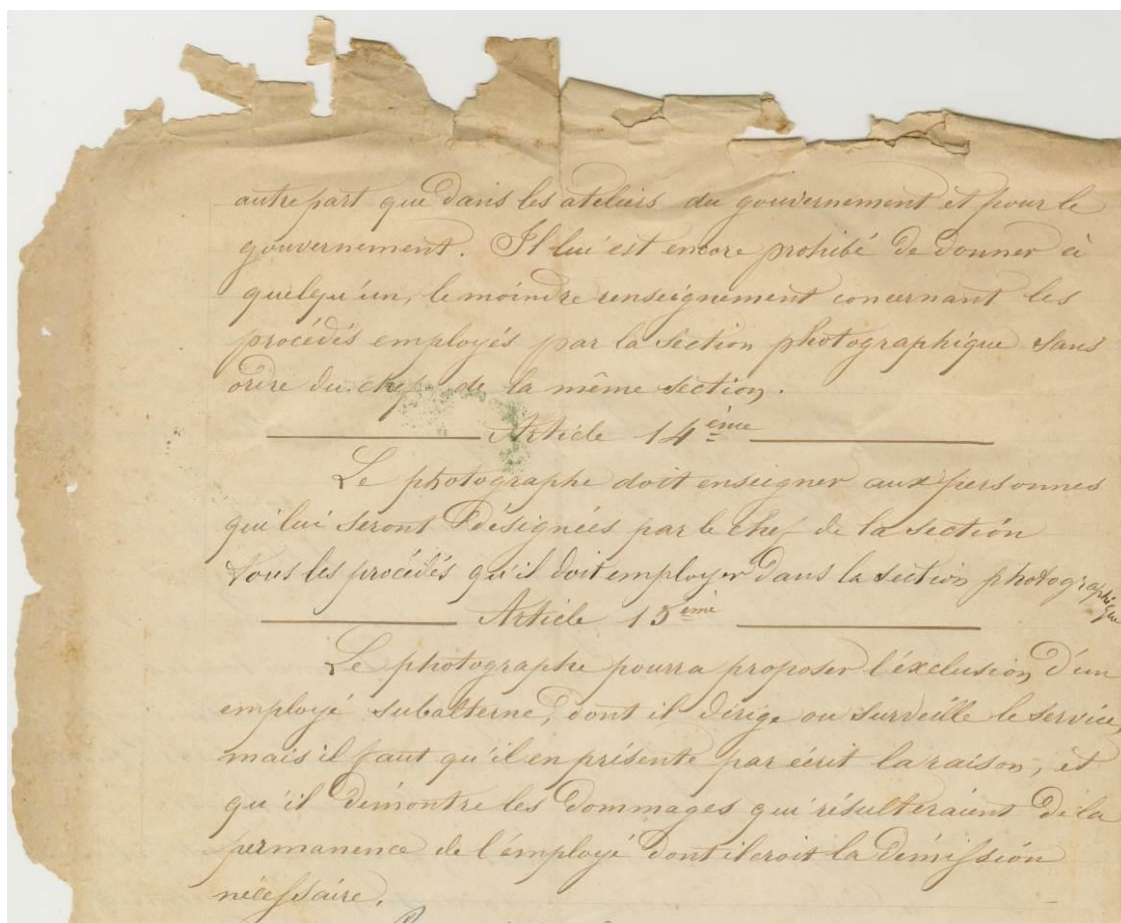 autre part que dans les ateliers du gouvernement et pour le
gouvernement. Il lui est encore prohibé de donner à
quelqu'un, le moindre renseignement concernant les
procédés employés par la section photographique sans
ordre du chef de la même section.
Article 14ème
Le photographe doit enseigner aux personnes
qui lui seront désignées par le chef de la section
tous les procédés qu'il doit employer dans la section photographique
Article 15ème
Le photographe pourra proposer l'éxclusion d'un
employé subalterne, dont il dirige ou surveille le service,
mais il faut qu'il en présente par écrit la raison, et
qu'il démontre les dommages qui résulteraient de la
permanence de l'employé dont il croit la démission
nécessaire.